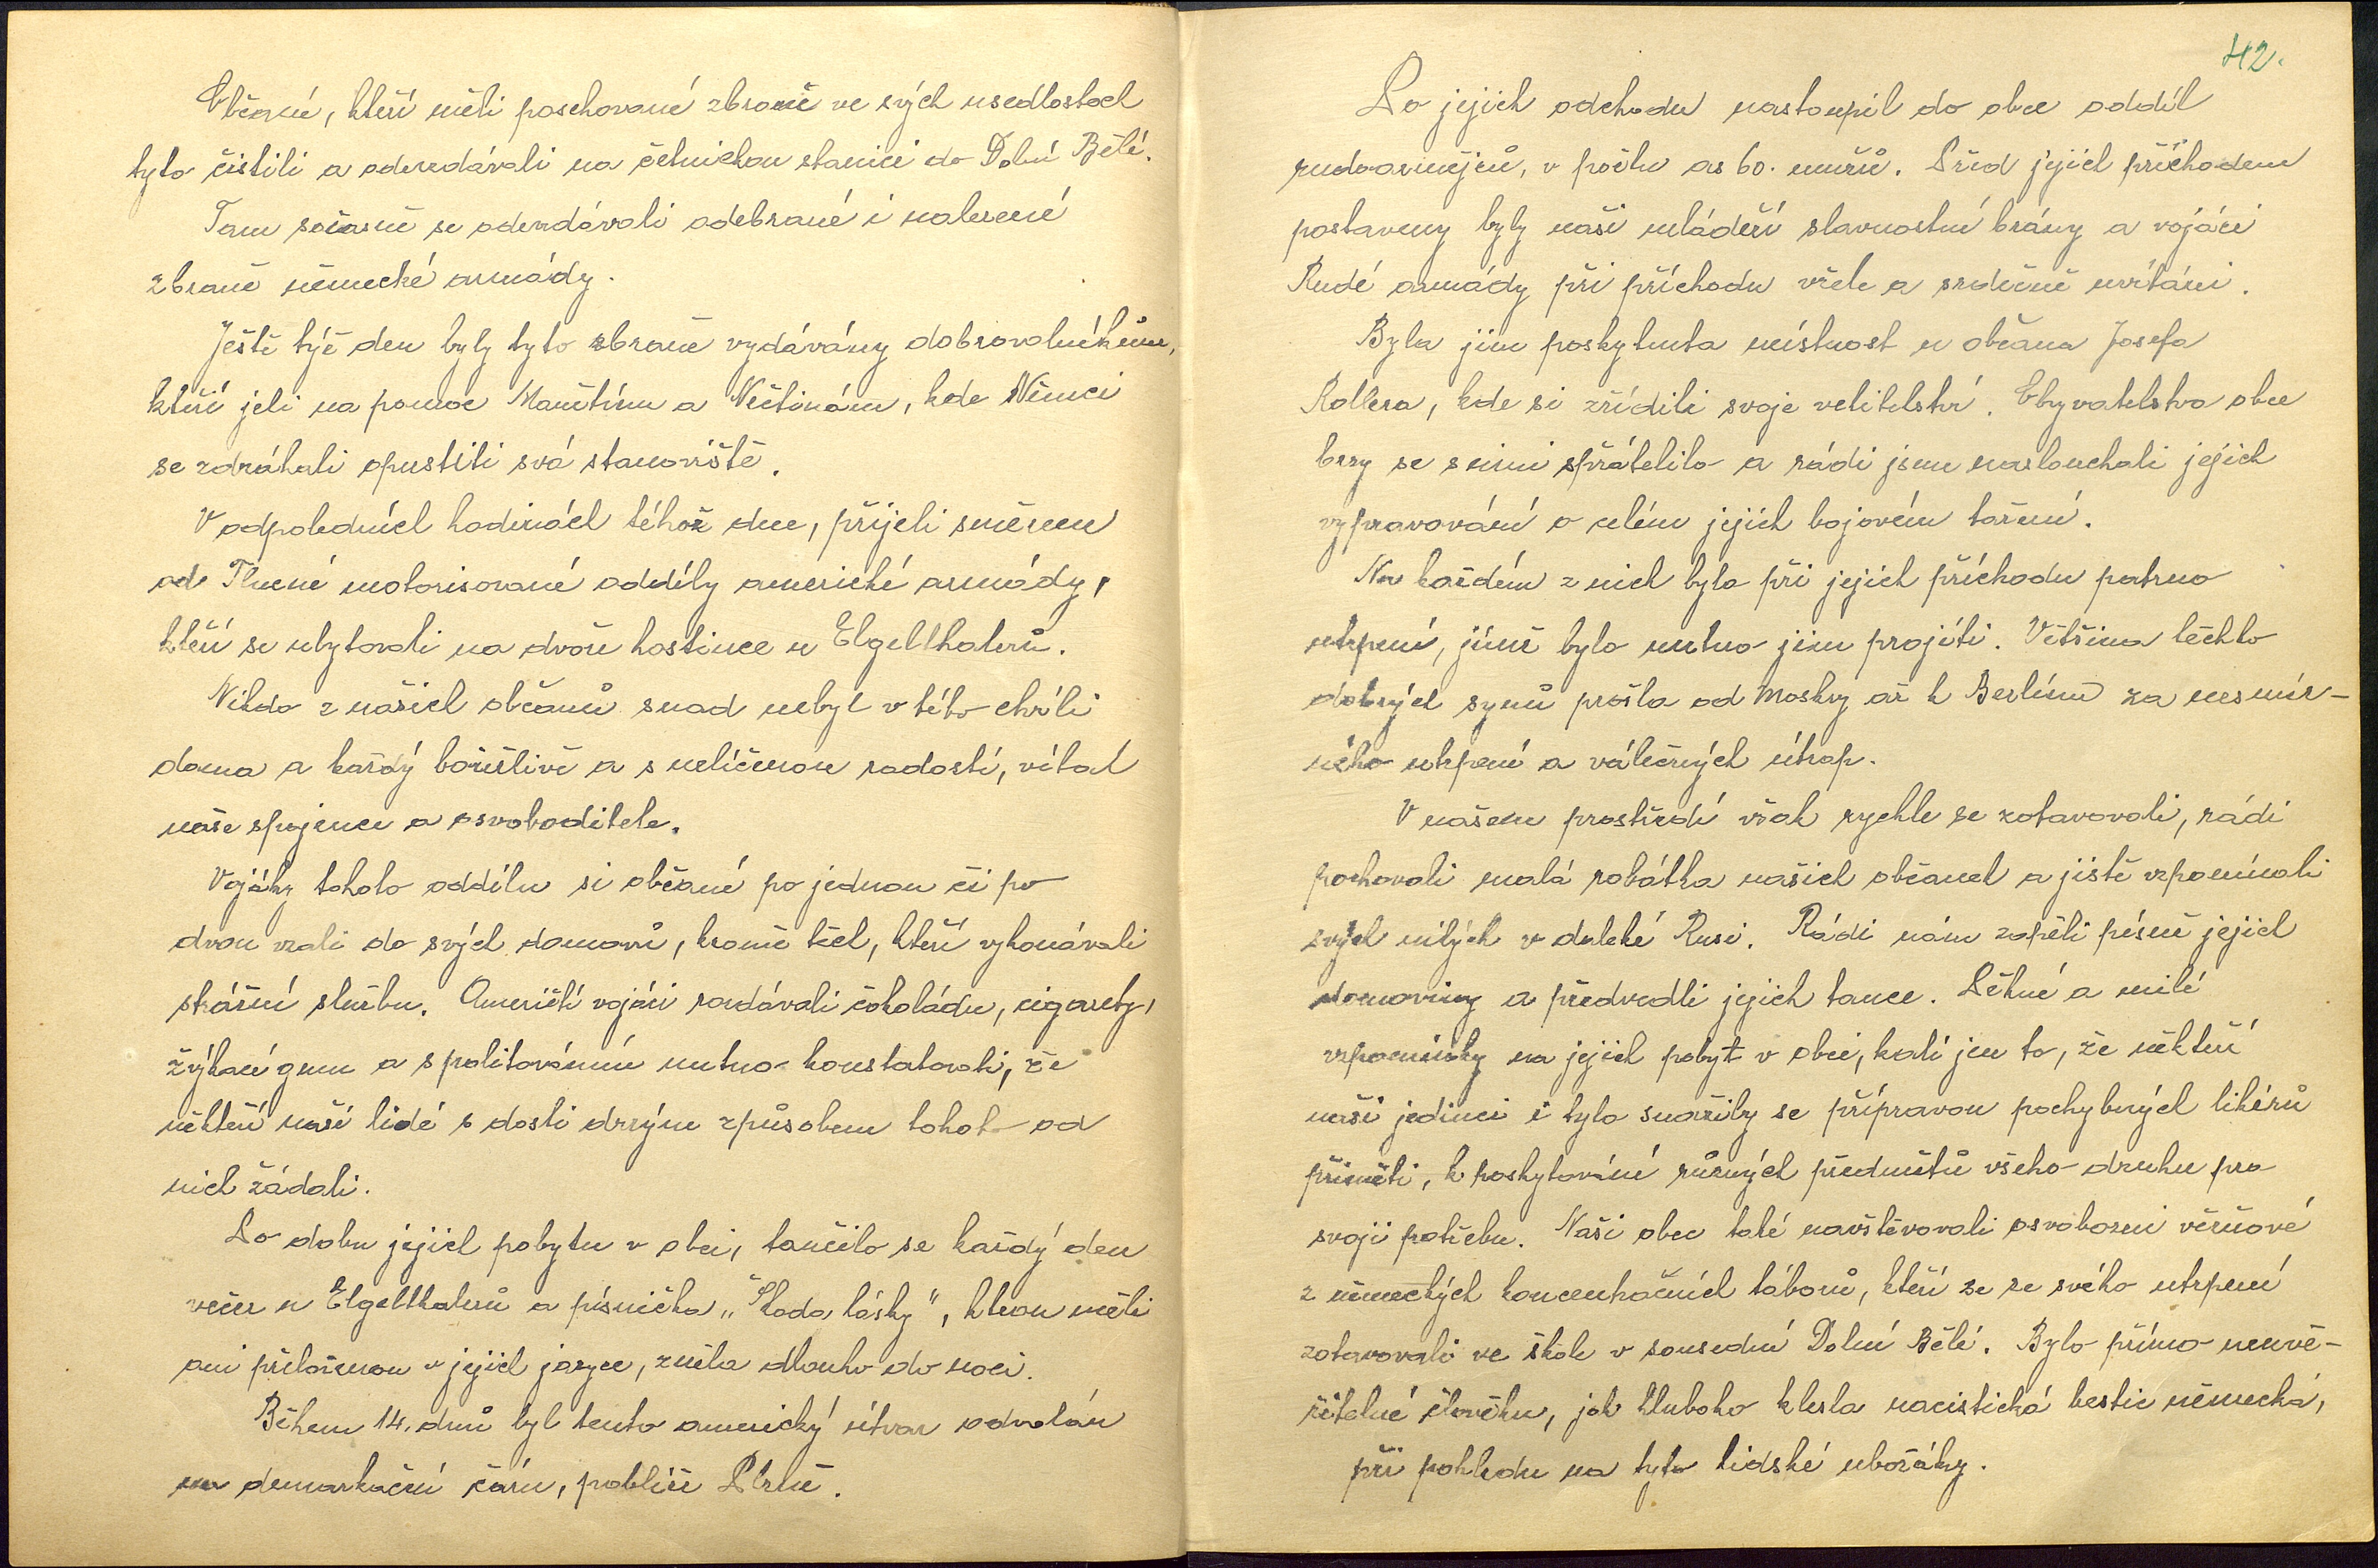 Občané, kteří měli poschované zbraně ve svých usedlostech
tyto čistili a odevzdávali na četnickou stanici do Dolní Bělé.
Tam současně se odevzdávali odebrané i nalezené
zbraně německé armády.
Ještě týž den byly tyto zbraně vydávány dobrovolníkům,
kteří jeli na pomoc Manětínu a Nečtinám, kde Němci
se zdráhali opustiti svá stanoviště.
V odpoledních hodinách téhož dne, přijeli směrem
od Tlucné motorisované oddíly americké armády,
kteří se ubytovali na dvoře hostince u Elgelthalerů.
Nikdo z našich občanů snad nebyl v této chvíli
doma a každý bouřlivě a s nelíčenou radostí, vítal
naše spojence a osvoboditele.
Vojáky tohoto oddílu si občané po jednom či po
dvou vzali do svých domovů, kromě těch, kteří vykonávali
strážní službu. Američtí vojáci rozdávali čokoládu, cigarety,
žvýkací gumu a s politováním nutno konstatovati, že
někteří naši lidé s dosti drzým způsobem tohoto od
nich žádali.
Po dobu jejich pobytu v obci, tančilo se každý den
večer u Elgelthalerů a písnička „Škoda lásky", kterou měli
oni přeloženou v jejich jazyce, zněla dlouho do noci.
Během 14. dnů byl tento americký útvar odvolán
na demarkační čáru, poblíže Plzně.
42.
Po jejich odchodu nastoupil do obce oddíl
rudoarmějců, v počtu as 60. mužů. Před jejich příchodem
postaveny byly naší mládeží slavnostní brány a vojáci
Rudé armády při příchodu vřele a srdečně uvítáni.
Byla jim poskytnuta místnost u občana Josefa
Rollera, kde si zřídili svoje velitelství. Obyvatelstvo obce
brzy se s nimi spřátelilo a rádi jsme naslouchali jejich
vypravování o celém jejich bojovém tažení.
Na každém z nich bylo při jejich příchodu patrno
utrpení, jímž bylo nutno jim projíti. Většina těchto
dobrých synů prošla od Moskvy až k Berlínu za nesmír-
ného utrpení a válečných útrap.
V našem prostředí však rychle se zotavovali, rádi
pochovali malá robátka našich občanek a jistě vzpomínali
svých milých v daleké Rusi. Rádi nám zapěli písně jejich
domoviny a předvedli jejich tance. Pěkné a milé
vzpomínky na jejich pobyt v obci, kalí jen to, že někteří
naši jedinci i tyto snažily se přípravou pochybných likérů
přiměti, k poskytování různých předmětů všeho druhu pro
svoji potřebu. Naši obec také navštěvovali osvobození věznové
z německých koncentračních táborů, kteří se ze svého utrpení
zotavovali ve škole v sousední Dolní Bělé. Bylo přímo neuvě-
řitelné člověku, jak hluboko klesla nacistická bestie německá,
při pohledu na tyto lidské ubožáky.